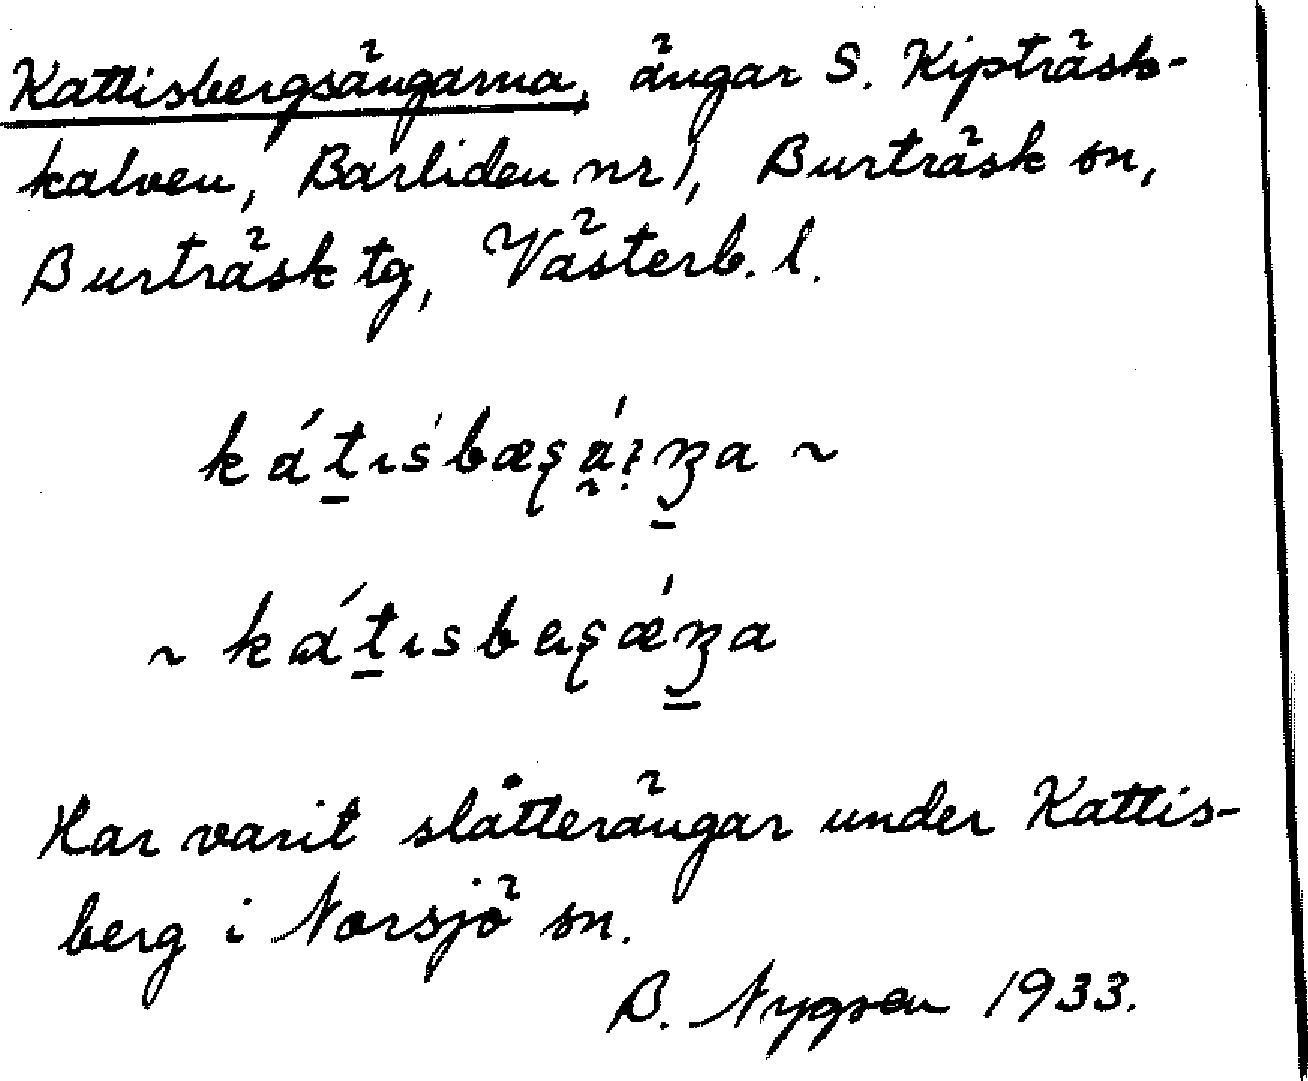 Kattisbergsängarna, ängar S. Kipträsk-
kalven, Barliden nr 1, Burträsk sn,
Burträsk tg, Västerb. l.
Har varit slåtterängar under Kattis-
berg i Norsjö sn.
B. Nygren 1933.